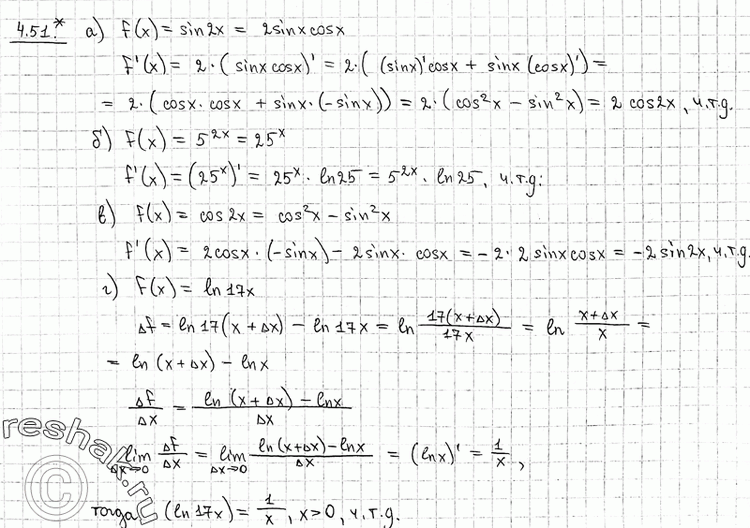 4.51.* а) f(x) = sin2x = 2sinxcosx
f'(x) = 2·(sinxcosx)' = 2·((sinx)'cosx + sinx(cosx)') =
= 2·(cosx·cosx + sinx·(-sinx)) = 2·(cos²x - sin²x) = 2cos2x, ч.т.д.
б) f(x) = 5^{2x} = 25^x
f'(x) = (25^x)' = 25^x · ln25 = 5^{2x} · ln25, ч.т.д.
в) f(x) = cos2x = cos²x - sin²x
f'(x) = 2cosx·(-sinx) - 2sinx·cosx = -2·2sinxcosx = -2sin2x, ч.т.д.
г) f(x) = ln17x
Δf = ln17(x+Δx) - ln17x = ln \frac{17(x+Δx)}{17x} = ln \frac{x+Δx}{x} =
= ln(x+Δx) - lnx
\frac{Δf}{Δx} = \frac{ln(x+Δx) - lnx}{Δx}
lim_{Δx→0} \frac{Δf}{Δx} = lim_{Δx→0} \frac{ln(x+Δx) - lnx}{Δx} = (lnx)' = \frac{1}{x},
тогда (ln17x) = \frac{1}{x}, x>0, ч.т.д.
reshak.ru
©